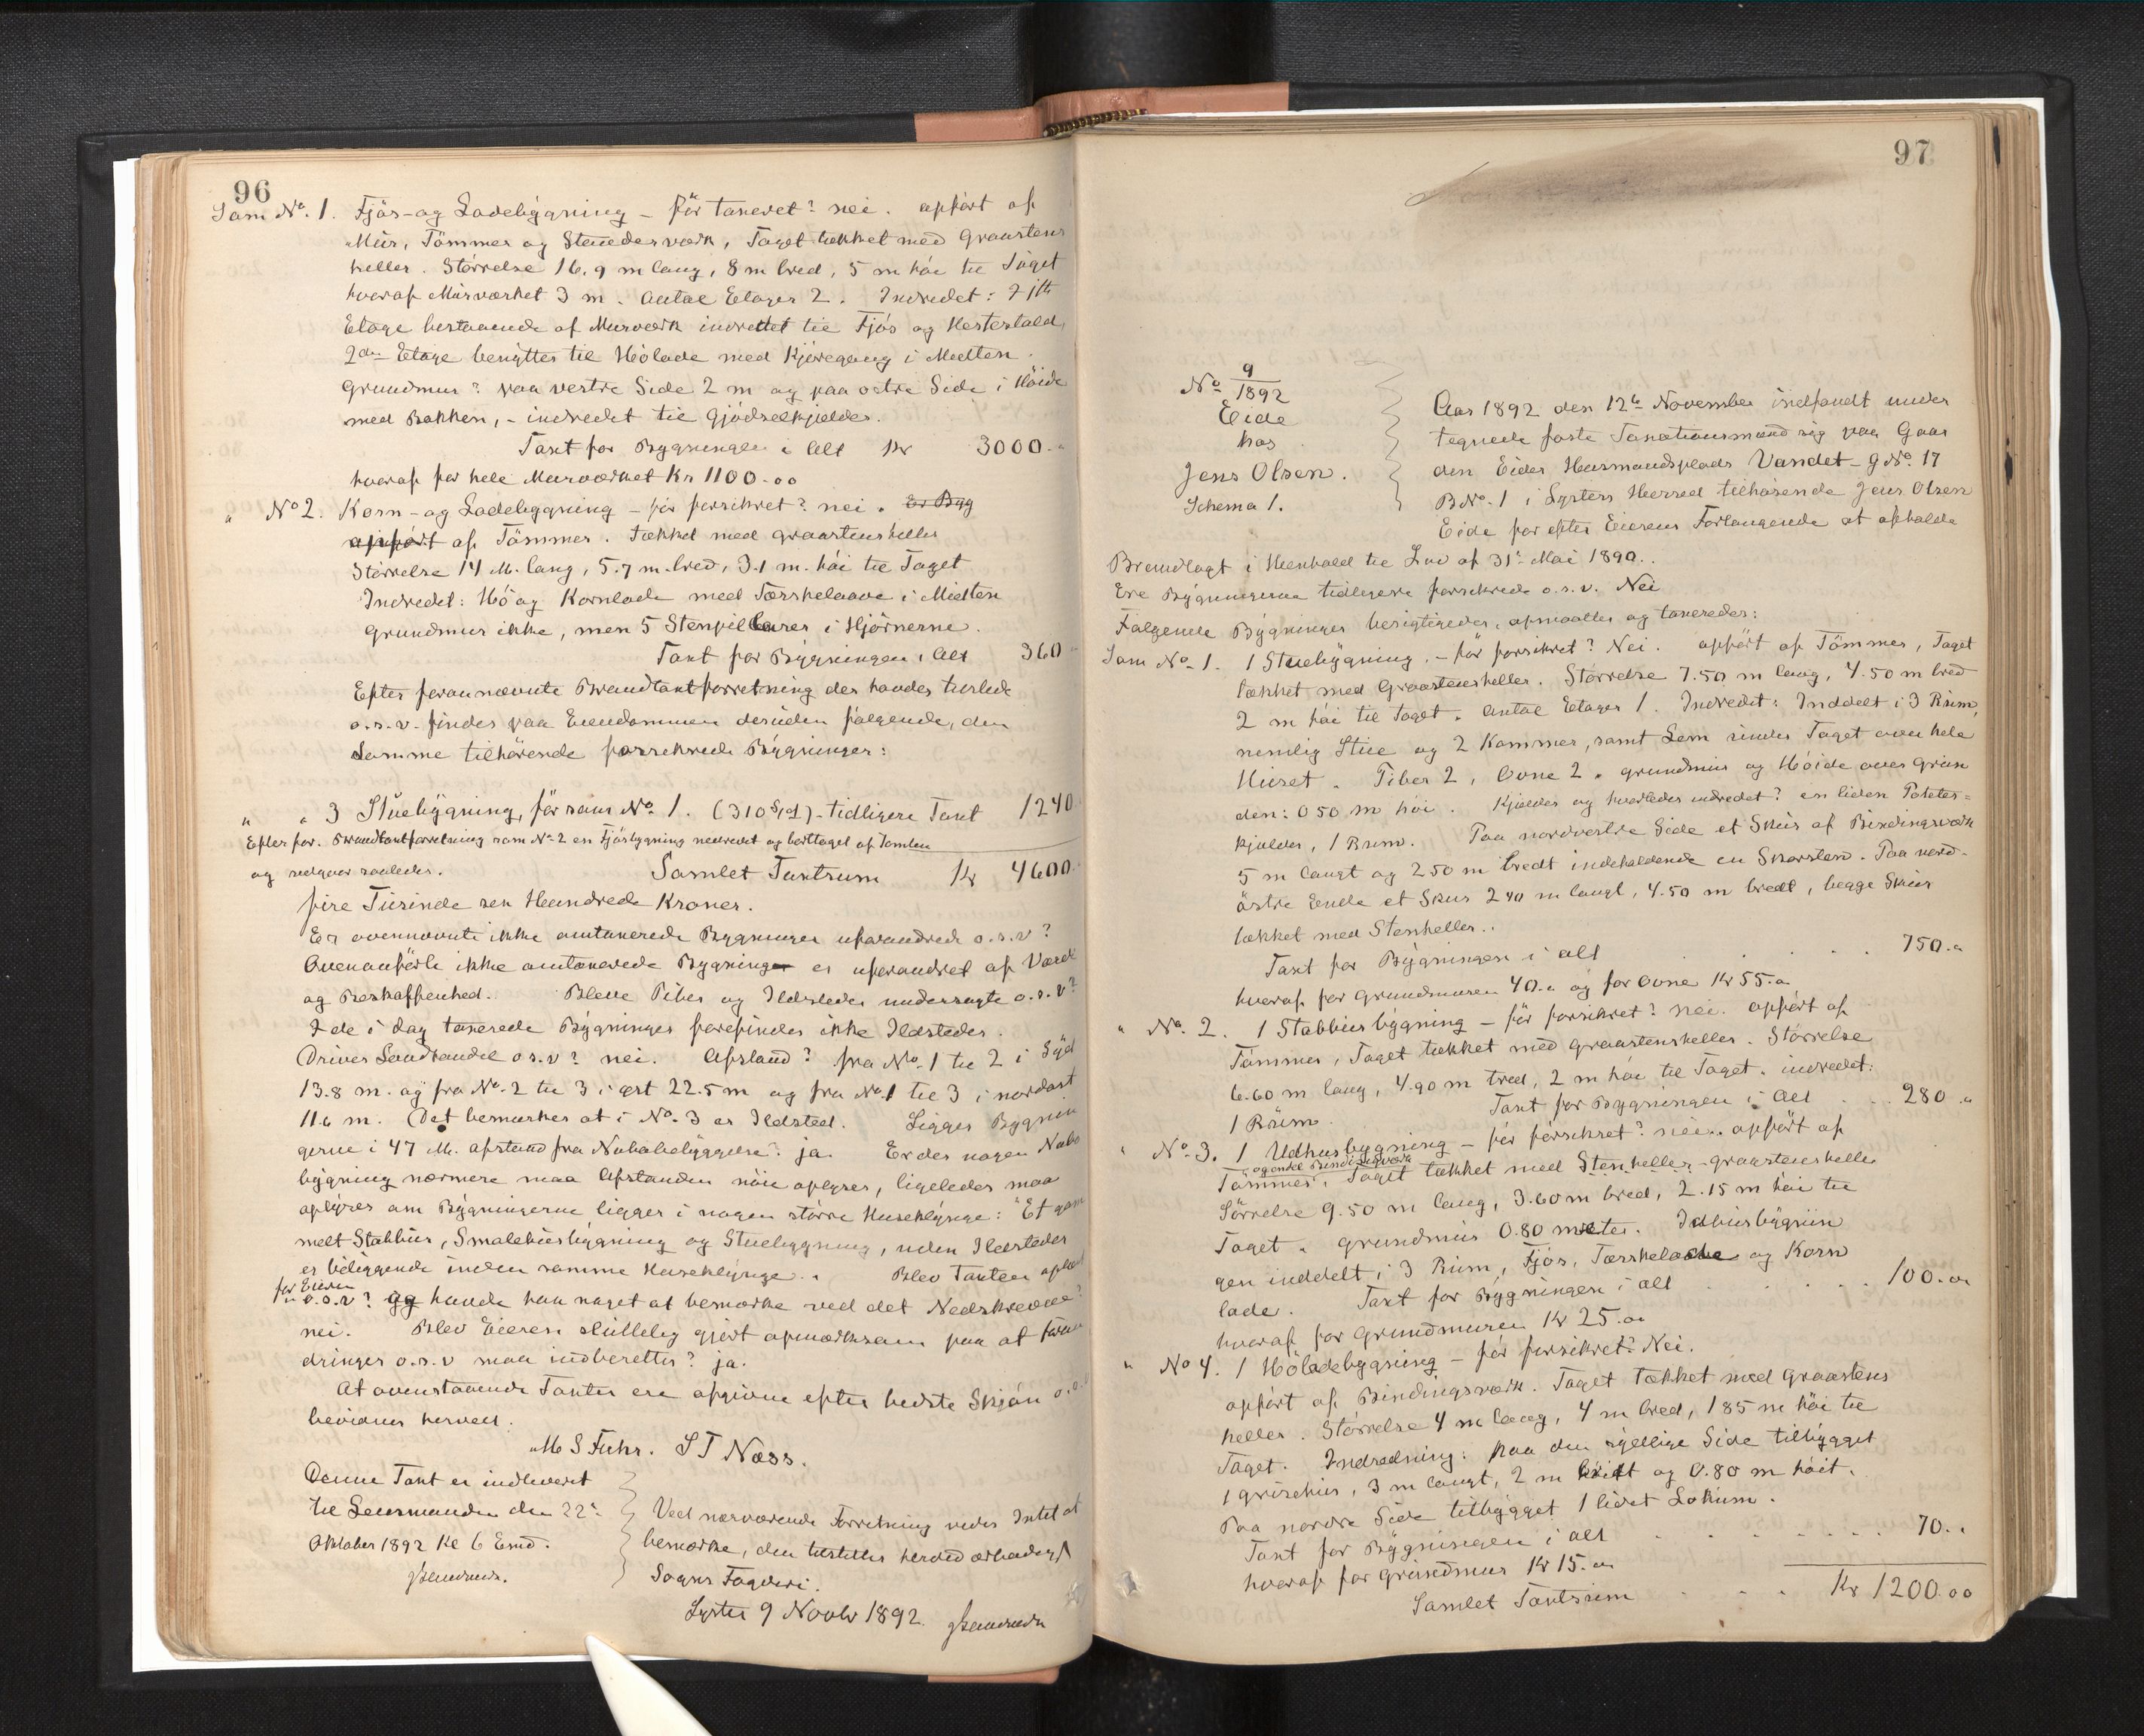 96
Som No. 1. Fjös- og Ladebygning – för taxeret? nei. opfört af
Mur, Tömmer og Stenderværk, Taget tækket med Graastens
heller. Störrelse 16.9 m lang, 8 m bred, 5 m höi til Taget
hvoraf Murværket 3 m. Antal Etager 2. Indredet:
Etage bestaaende af Murværk indrettet til Fjös og Hestestald,
2den Etage benyttes til Hölade med Kjöregang i Midten.
Grundmur? paa vestre Side 2 m og paa östre Side i Höide
med Bakken, – indredet til Gjödselkjelder.
Taxt for Bygningen i Alt Kr 3000.
hvoraf for hele Murværket Kr 1100.00
" No 2. Korn- og Ladebygning – för forsikret? nei. Er Byg
opfört af Tömmer. Tækket med Graastensheller
Störrelse 14 M. lang, 5.7 m. bred, 3.1 m. höi til Taget
Indredet: Hö og Kornlade med Tærskelaave i Midten
Grundmur ikke, men 5 Stenpillarer i Hjörnerne.
Taxt for Bygningen i Alt 360
Efter forannævnte Brandtaxtforretning der havdes tilstede
o.s.v. findes paa Eiendommen desuden fölgende, den
samme tilhörende forsikrede Bygninger:
" " 3 Stuebygning, för som No. 1. (310 Spd) – tidligere Taxt 1240
Efter for. Brandtaxtforretning som No 2 en Fjösbygning nedrevet og borttaget af Tomten
og udgaar saaledes. Samlet Taxtsum Kr 4600.
fire Tusinde sex Hundrede Kroner.
Er ovennævnte ikke omtaxerede Bygninger uforandrede o.s.v?
Ovenanförte ikke omtaxerede Bygning er uforandret af Værd
og Beskaffenhed. Bleve Piber og Ildsteder undersøgte o.s.v?
I de i dag taxerede Bygninger forefindes ikke Ildsteder.
Drives Landhandel o s.v? nei. Afstand? fra No. 1 til 2 i Syd
13.8 m. og fra No. 2 til 3 i öst 22.5 m og fra No. 1 til 3 i nordöst
11.6 m. Det bemærkes at i No. 3 er Ildsted. Ligger Bygnin
gerne i 47 M. afstand fra Nabobebyggelse? ja. Er der nogen Nabo
bygning nærmere maa Afstanden nöie oplyses, ligeledes maa
oplyses om Bygningerne ligger i nogen större Huseklynge: "Et gam
melt Stabbur, Smalehusbygning og Stuebygning, uden Ildsteder
er beliggende inden samme Huseklynge. Blev Taxten oplæst
for Eieren
o.s.v? og havde han noget at bemærke ved det Nedskrevne?
nei. Blev Eieren skriftlig gjort opmærksom paa at foran
dringer o.s.v maa indberettes? ja.
At ovenstaaende Taxter ere afgivne efter bedste Skjön o.s.v
bevidnes herved.
M S Fuhr. S T Næss.
Denne Taxt er indleveret
til Lensmanden den 22de
Oktober 1892 Kl 6 Emd.
Ved nærværende Forretning vides Intet at
bemærke, den tilstilles herved ærbødigst
Sogns Fogderi.
Lyster 9 Novbr 1892.
97
No 9/1892
Eide
hos
Jens Olsen.
Schema 1.
Aar 1892 den 12te November indfandt under
tegnede faste Taxationsmænd sig paa Gaar
den Eides Husmandsplads Vandet – G No. 17
B No. 1 i Lysters Herred tilhörende Jens Olsen
Eide for efter Eierens Forlangende at afholde
Brandtaxt i Henhold til Lov af 31te Mai 1890.
Ere Bygningerne tidligere forsikrede o.s.v. Nei
Fölgende Bygninger besigtigedes, opmaaltes og taxeredes:
Som No. 1. 1 Stuebygning. – för forsikret? Nei. opfört af Tömmer, Taget
tækket med Graastensheller. Störrelse 7.50 m lang, 4.50 m bred
2 m höi til Taget. Antal Etager 1. Indredet: Inddelt i 3 Rum,
nemlig Stue og 2 Kammer, samt Lem under Taget over hele
Huset. Piber 2, Ovne 2. Grundmur og Höide over Grun
den: 0 50 m höi. Kjelder og hvorledes indredet? en liden Potetes-
kjelder, 1 Rum. Paa nordvestre Side et Skur af Bindingsværk
5 m langt og 2 50 m bredt indeholdende en Skorsten. Paa nord-
östre Ende et Skur 2 40 m langt, 4.50 m bredt, begge Skur
tækket med Stenheller..
Taxt for Bygningen i alt 750.
hvoraf for Grundmuren 40. og for Ovne Kr 55.
" No. 2. 1 Stabbursbygning – för forsikret? nei. opfört af
Tömmer, Taget tækket med Graastensheller. Störrelse
6.60 m lang, 4.90 m bred, 2 m höi til Taget. indredet:
1 Rum. Taxt for Bygningen i Alt 280.
" No. 3. 1 Udhusbygning – för forsikret? nei. opfört af
og endel Bindingsværk
Tömmer, Taget tækket med Stenheller – graastensheller
Störrelse 9.50 m lang, 3.60 m bred, 2.15 m höi til
Taget. Grundmur 0.80 meter. Udhusbygnin
gen inddelt i 3 Rum, Fjös, Tærskelade og Korn
lade. Taxt for Bygningen i alt 100.00
hvoraf for Grundmuren Kr 25.00
" No 4. 1 Höladebygning – för forsikret? Nei.
opfört af Bindingsværk. Taget tækket med Graastens
heller. Störrelse 4 m lang, 4 m bred, 1 85 m höi til
Taget. Indredning: Paa den sydlige Side tilbygget
1 Grisehus, 3 m langt, 2 m bredt og 0.80 m höit.
Paa nordre Side tilbygget 1 lidet Lokum.
Taxt for Bygningen i alt 70.
hvoraf for Grundmur Kr 15.00
Samlet Taxtsum Kr 1200.00